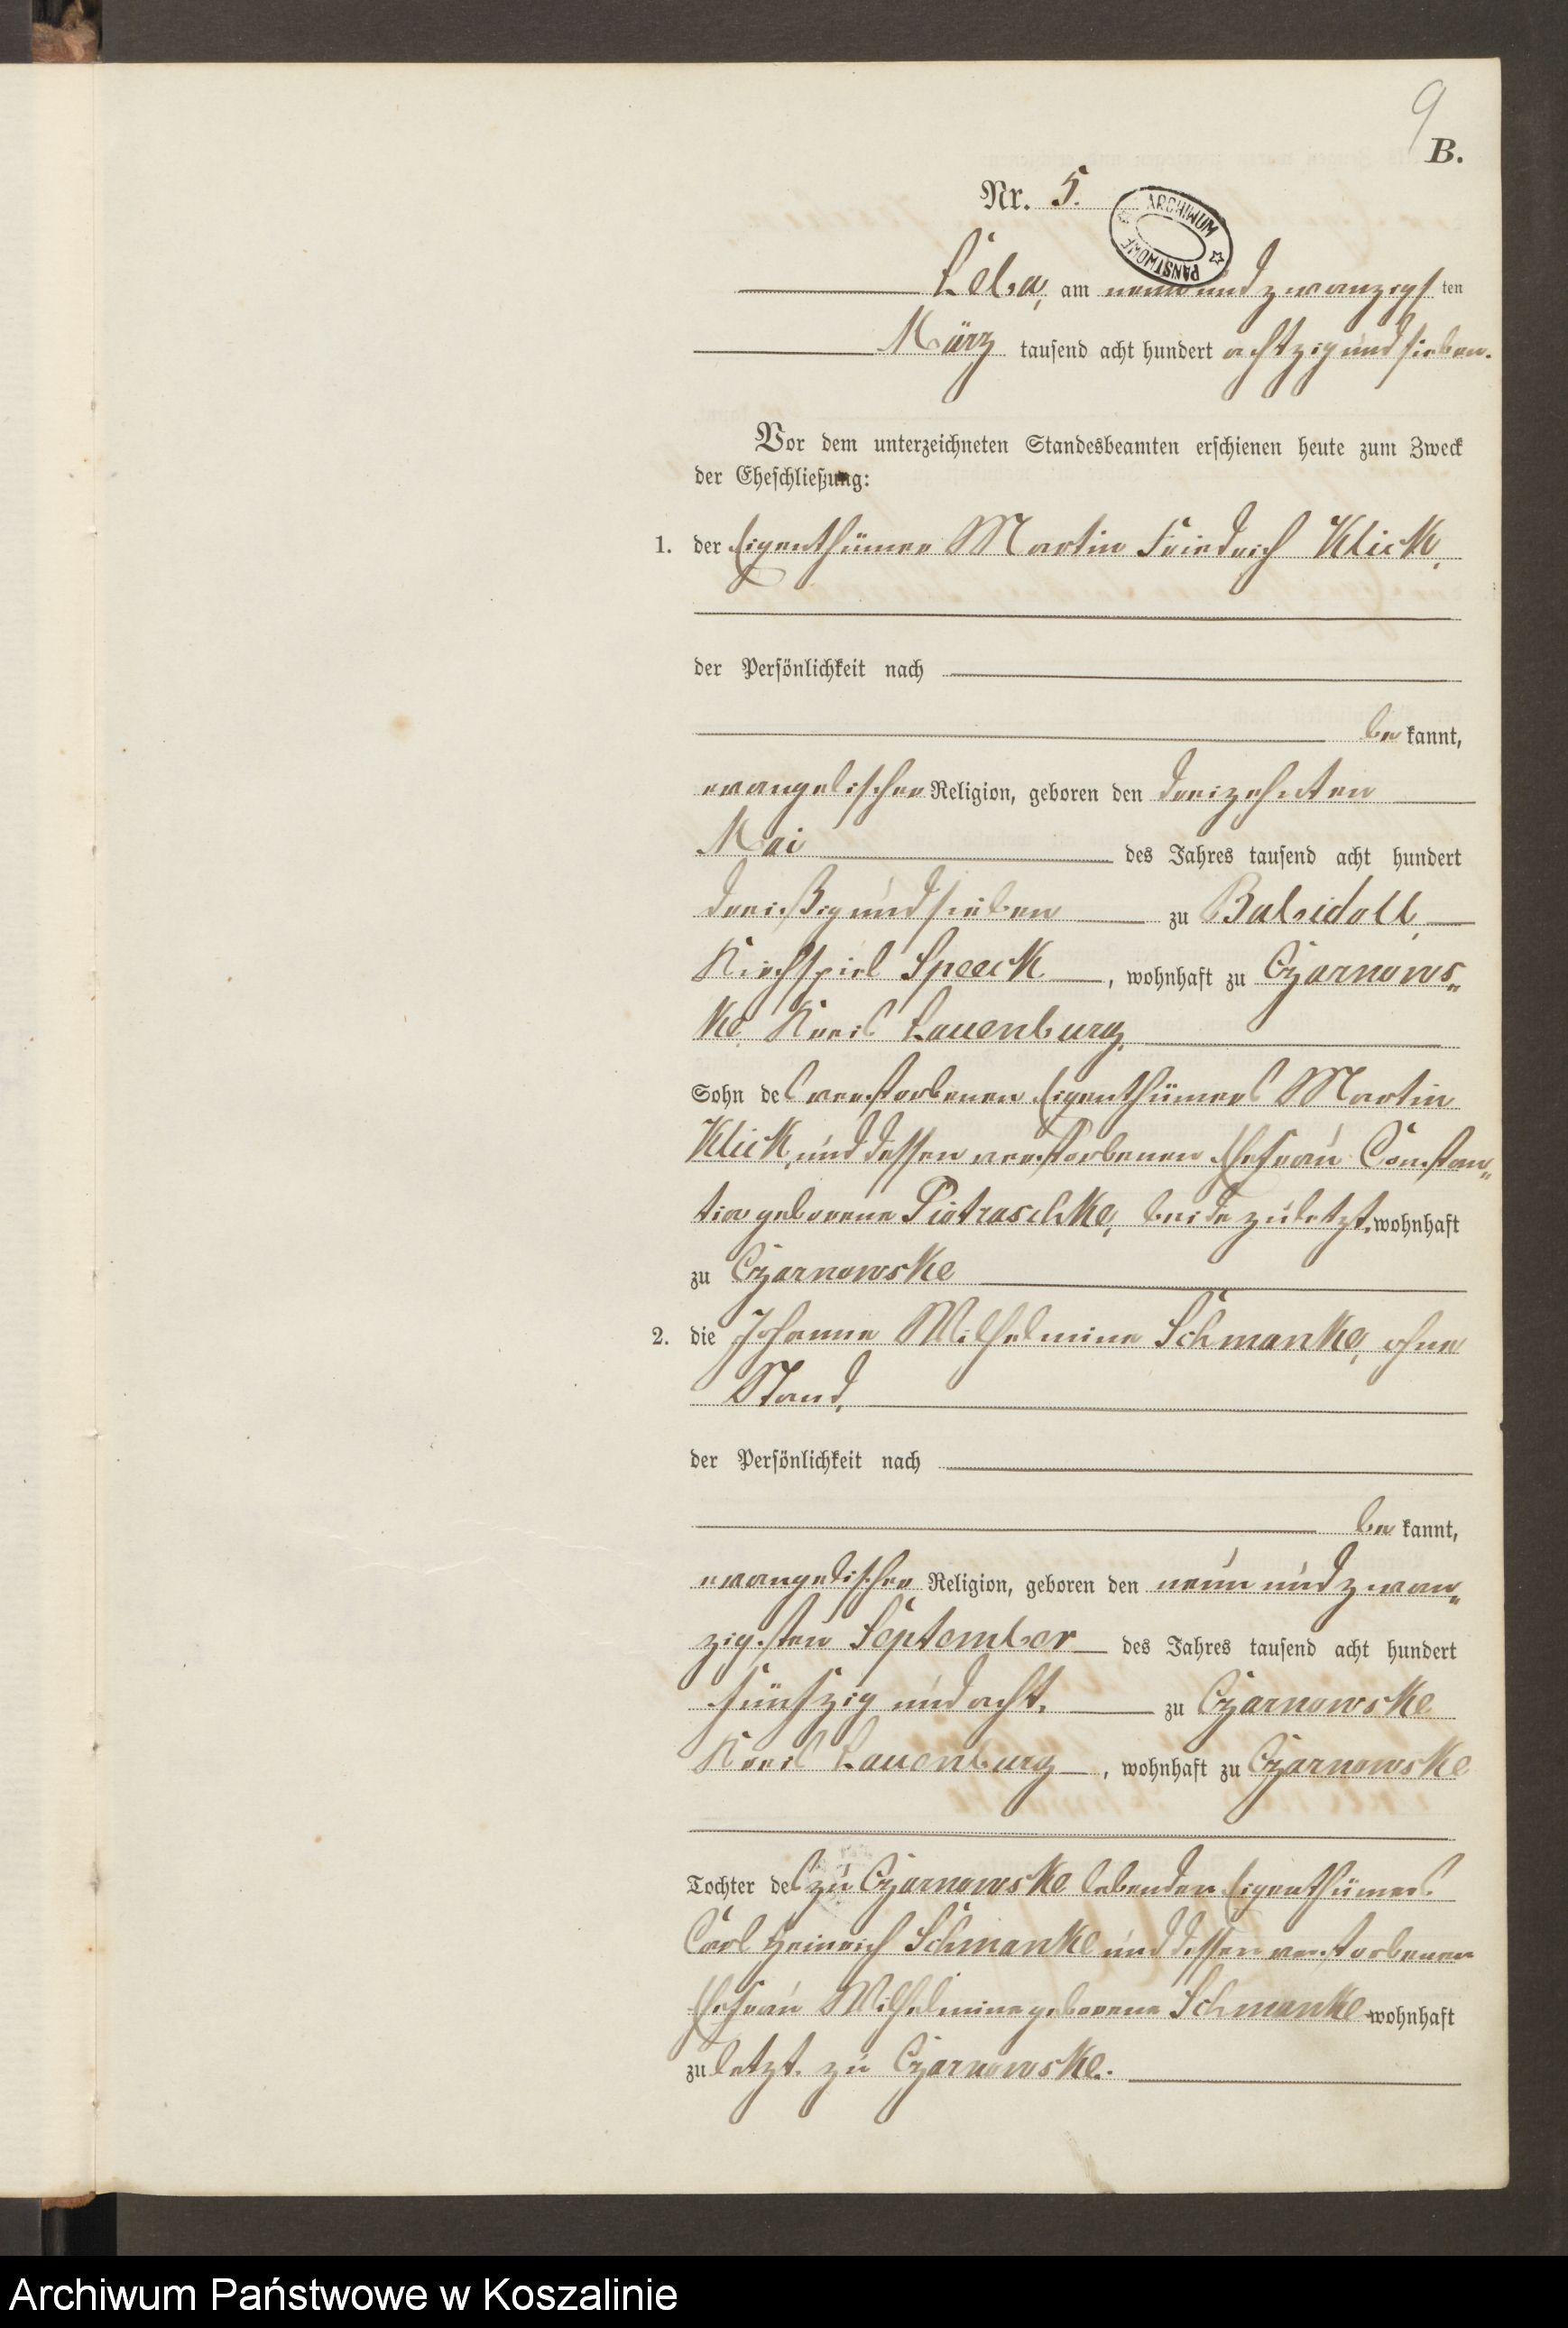 9
B.
Nr. 5.
ARCHIWUM PAŃSTWOWE
Leba, am neun und zwanzigsten
März tausend acht hundert achtzig und sieben.
Vor dem unterzeichneten Standesbeamten erschienen heute zum Zweck
der Eheschließung:
1. der Eigenthümer Martin Friedrich Klick,
der Persönlichkeit nach
be kannt,
evangelischer Religion, geboren den dreizehnten
Mai des Jahres tausend acht hundert
dreißig und sieben zu Babidoll,
Kirchspiel Speck, wohnhaft zu Czarnows„
ke, Kreis Lauenburg,
Sohn des verstorbenen Eigenthümers Martin
Klick, und dessen verstorbenen Ehefrau Constan„
tia geborene Piotraschke, beide zuletzt wohnhaft
zu Czarnowske
2. die Johanne Wilhelmine Schmanke, ohne
Stand,
der Persönlichkeit nach
be kannt,
evangelischer Religion, geboren den neun und zwan„
zigsten September des Jahres tausend acht hundert
fünfzig und acht, zu Czarnowske
Kreis Lauenburg, wohnhaft zu Czarnowske
Tochter des zu Czarnowske lebenden Eigenthümers
Carl Heinrich Schmanke und dessen verstorbenen
Ehefrau Wilhelmine geborene Schmanke wohnhaft
zuletzt zu Czarnowske.
Archiwum Państwowe w Koszalinie